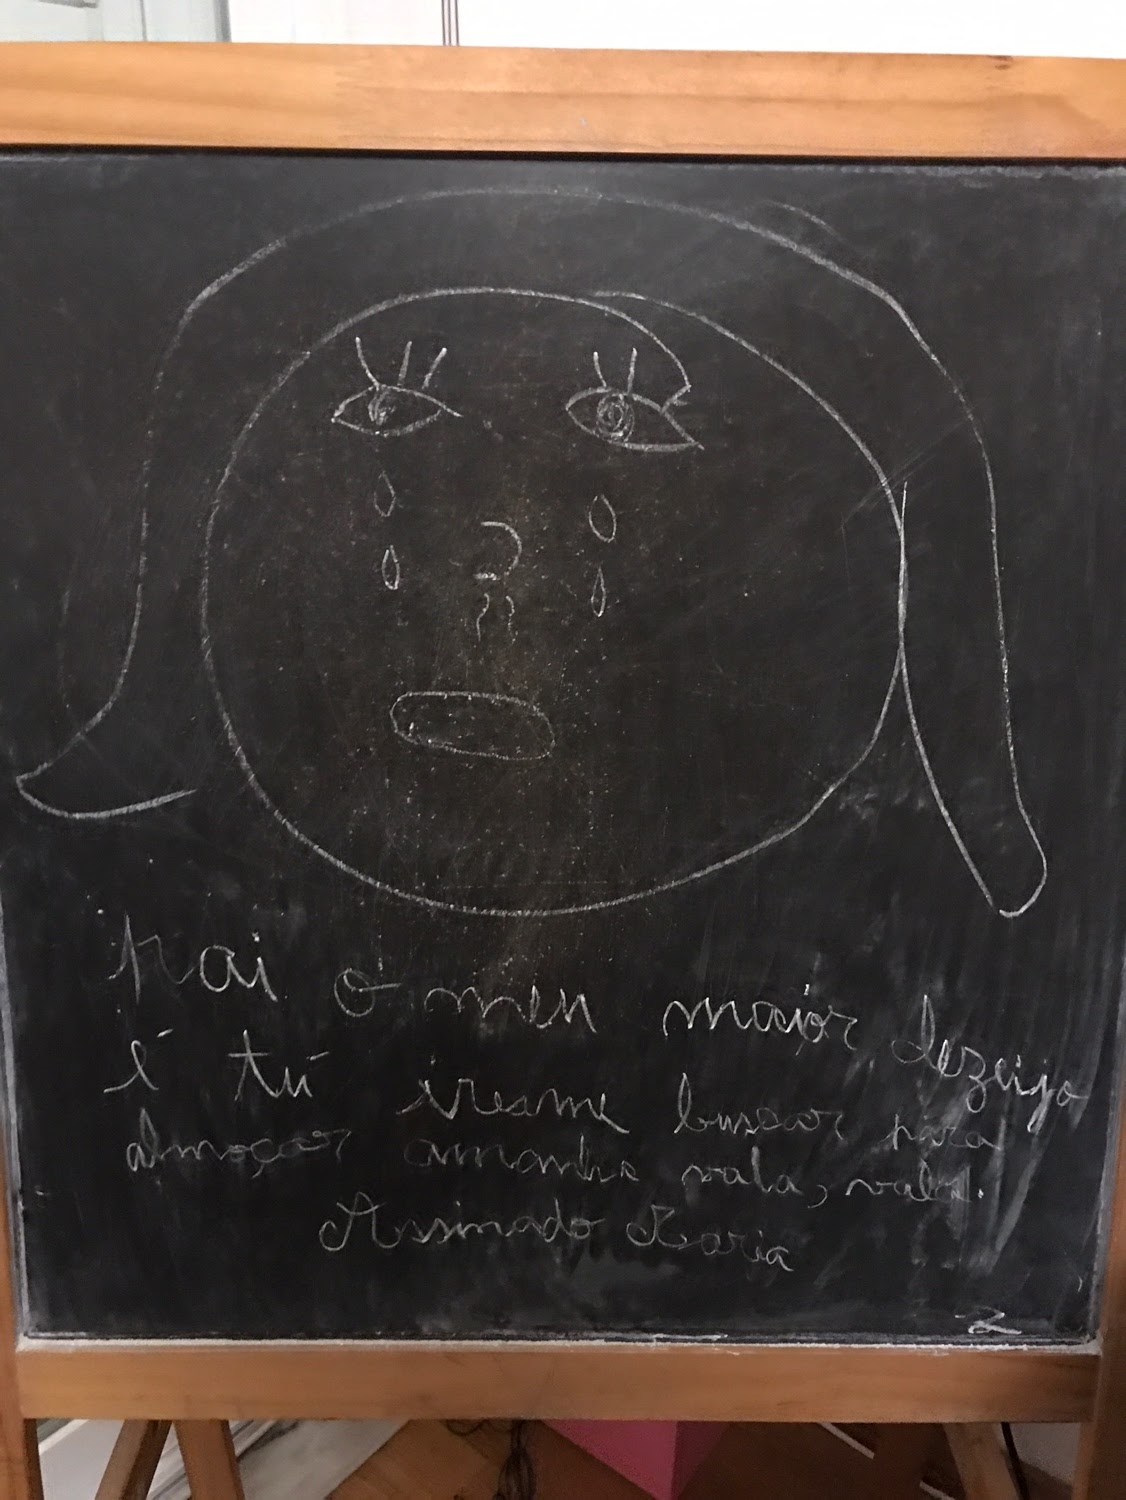 pai o meu maior dezeijo
é tú iresme buscar para
almoçar amanha vala, vala.
Assinado Maria